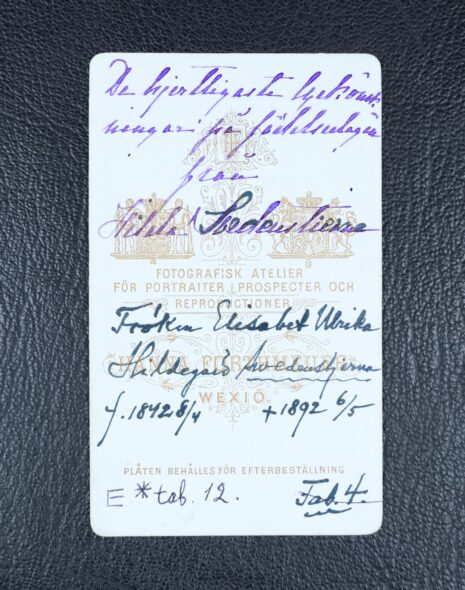 De hjertligaste lyckönsk-
ningar på födelsedagen
från
Hilda Svedenstierna
FOTOGRAFISK ATELIER
FÖR PORTRAITER, PROSPECTER OCH
REPRODUCTIONER
Fröken Elisabet Ulrika
HANNA FORTHMEIJER
Hildegard Svedenstjerna
WEXIÖ.
f. 1842 8/4 + 1892 6/5
PLÅTEN BEHÅLLES FÖR EFTERBESTÄLLNING
E * tab. 12. Tab. 4.